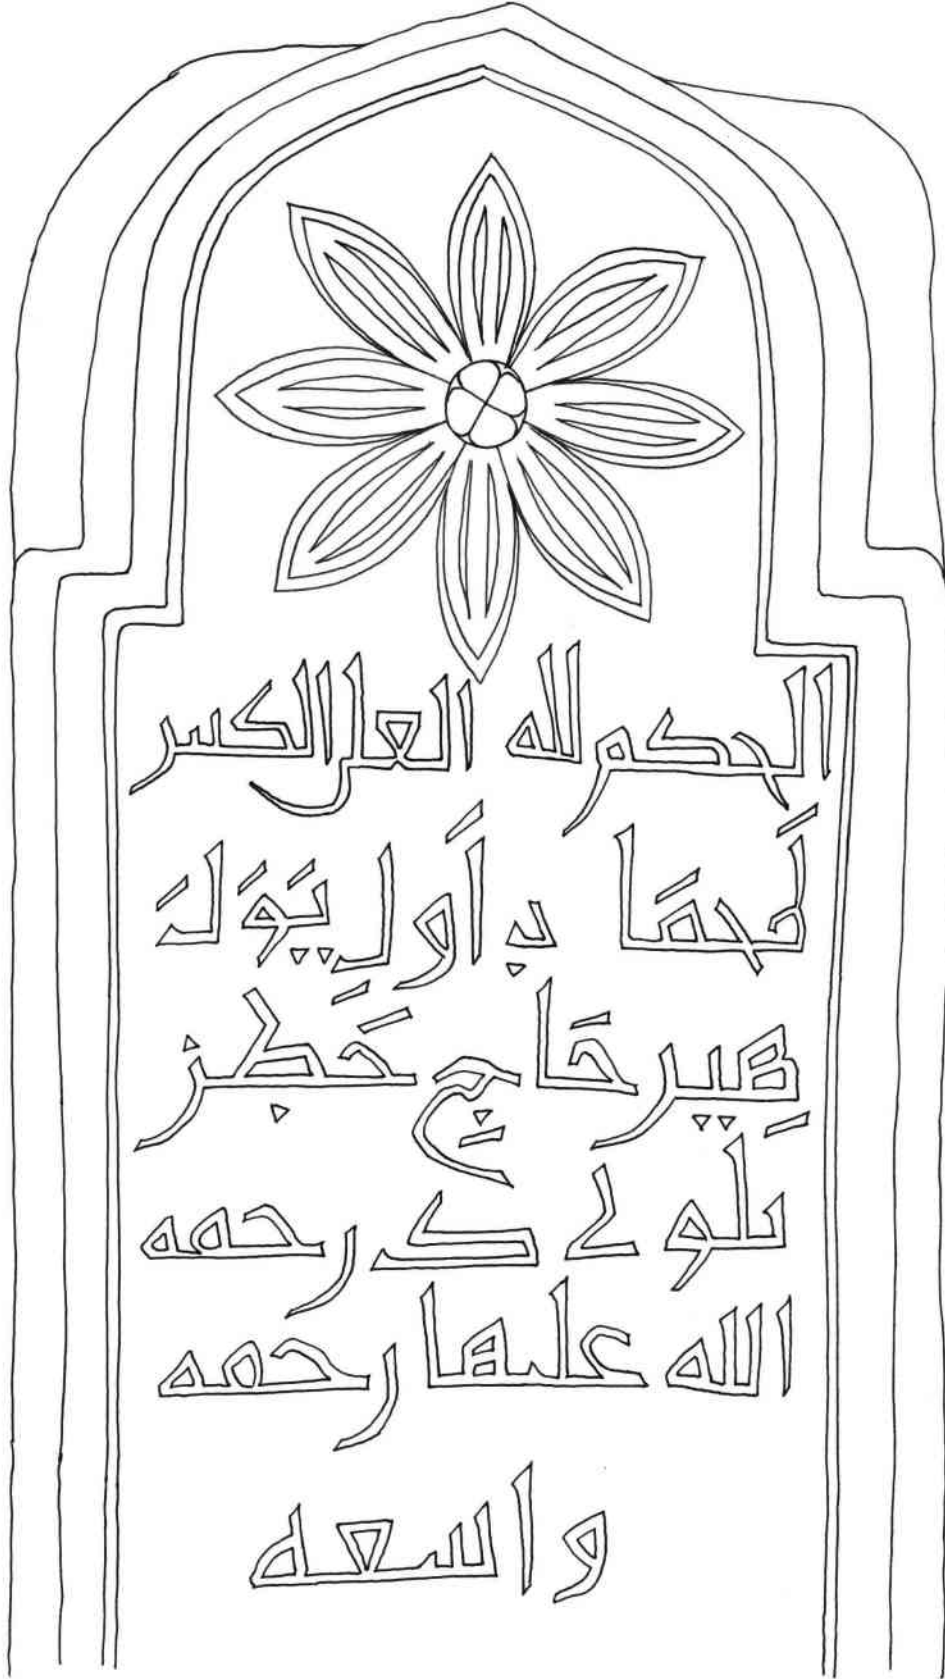 الحكم لله العلى الكبير
مَحمَا دِ اَولِ يَوَلَ
هِير حَاجِ حَطِز
بلوى ك رحمه
الله عليها رحمه
واسعه